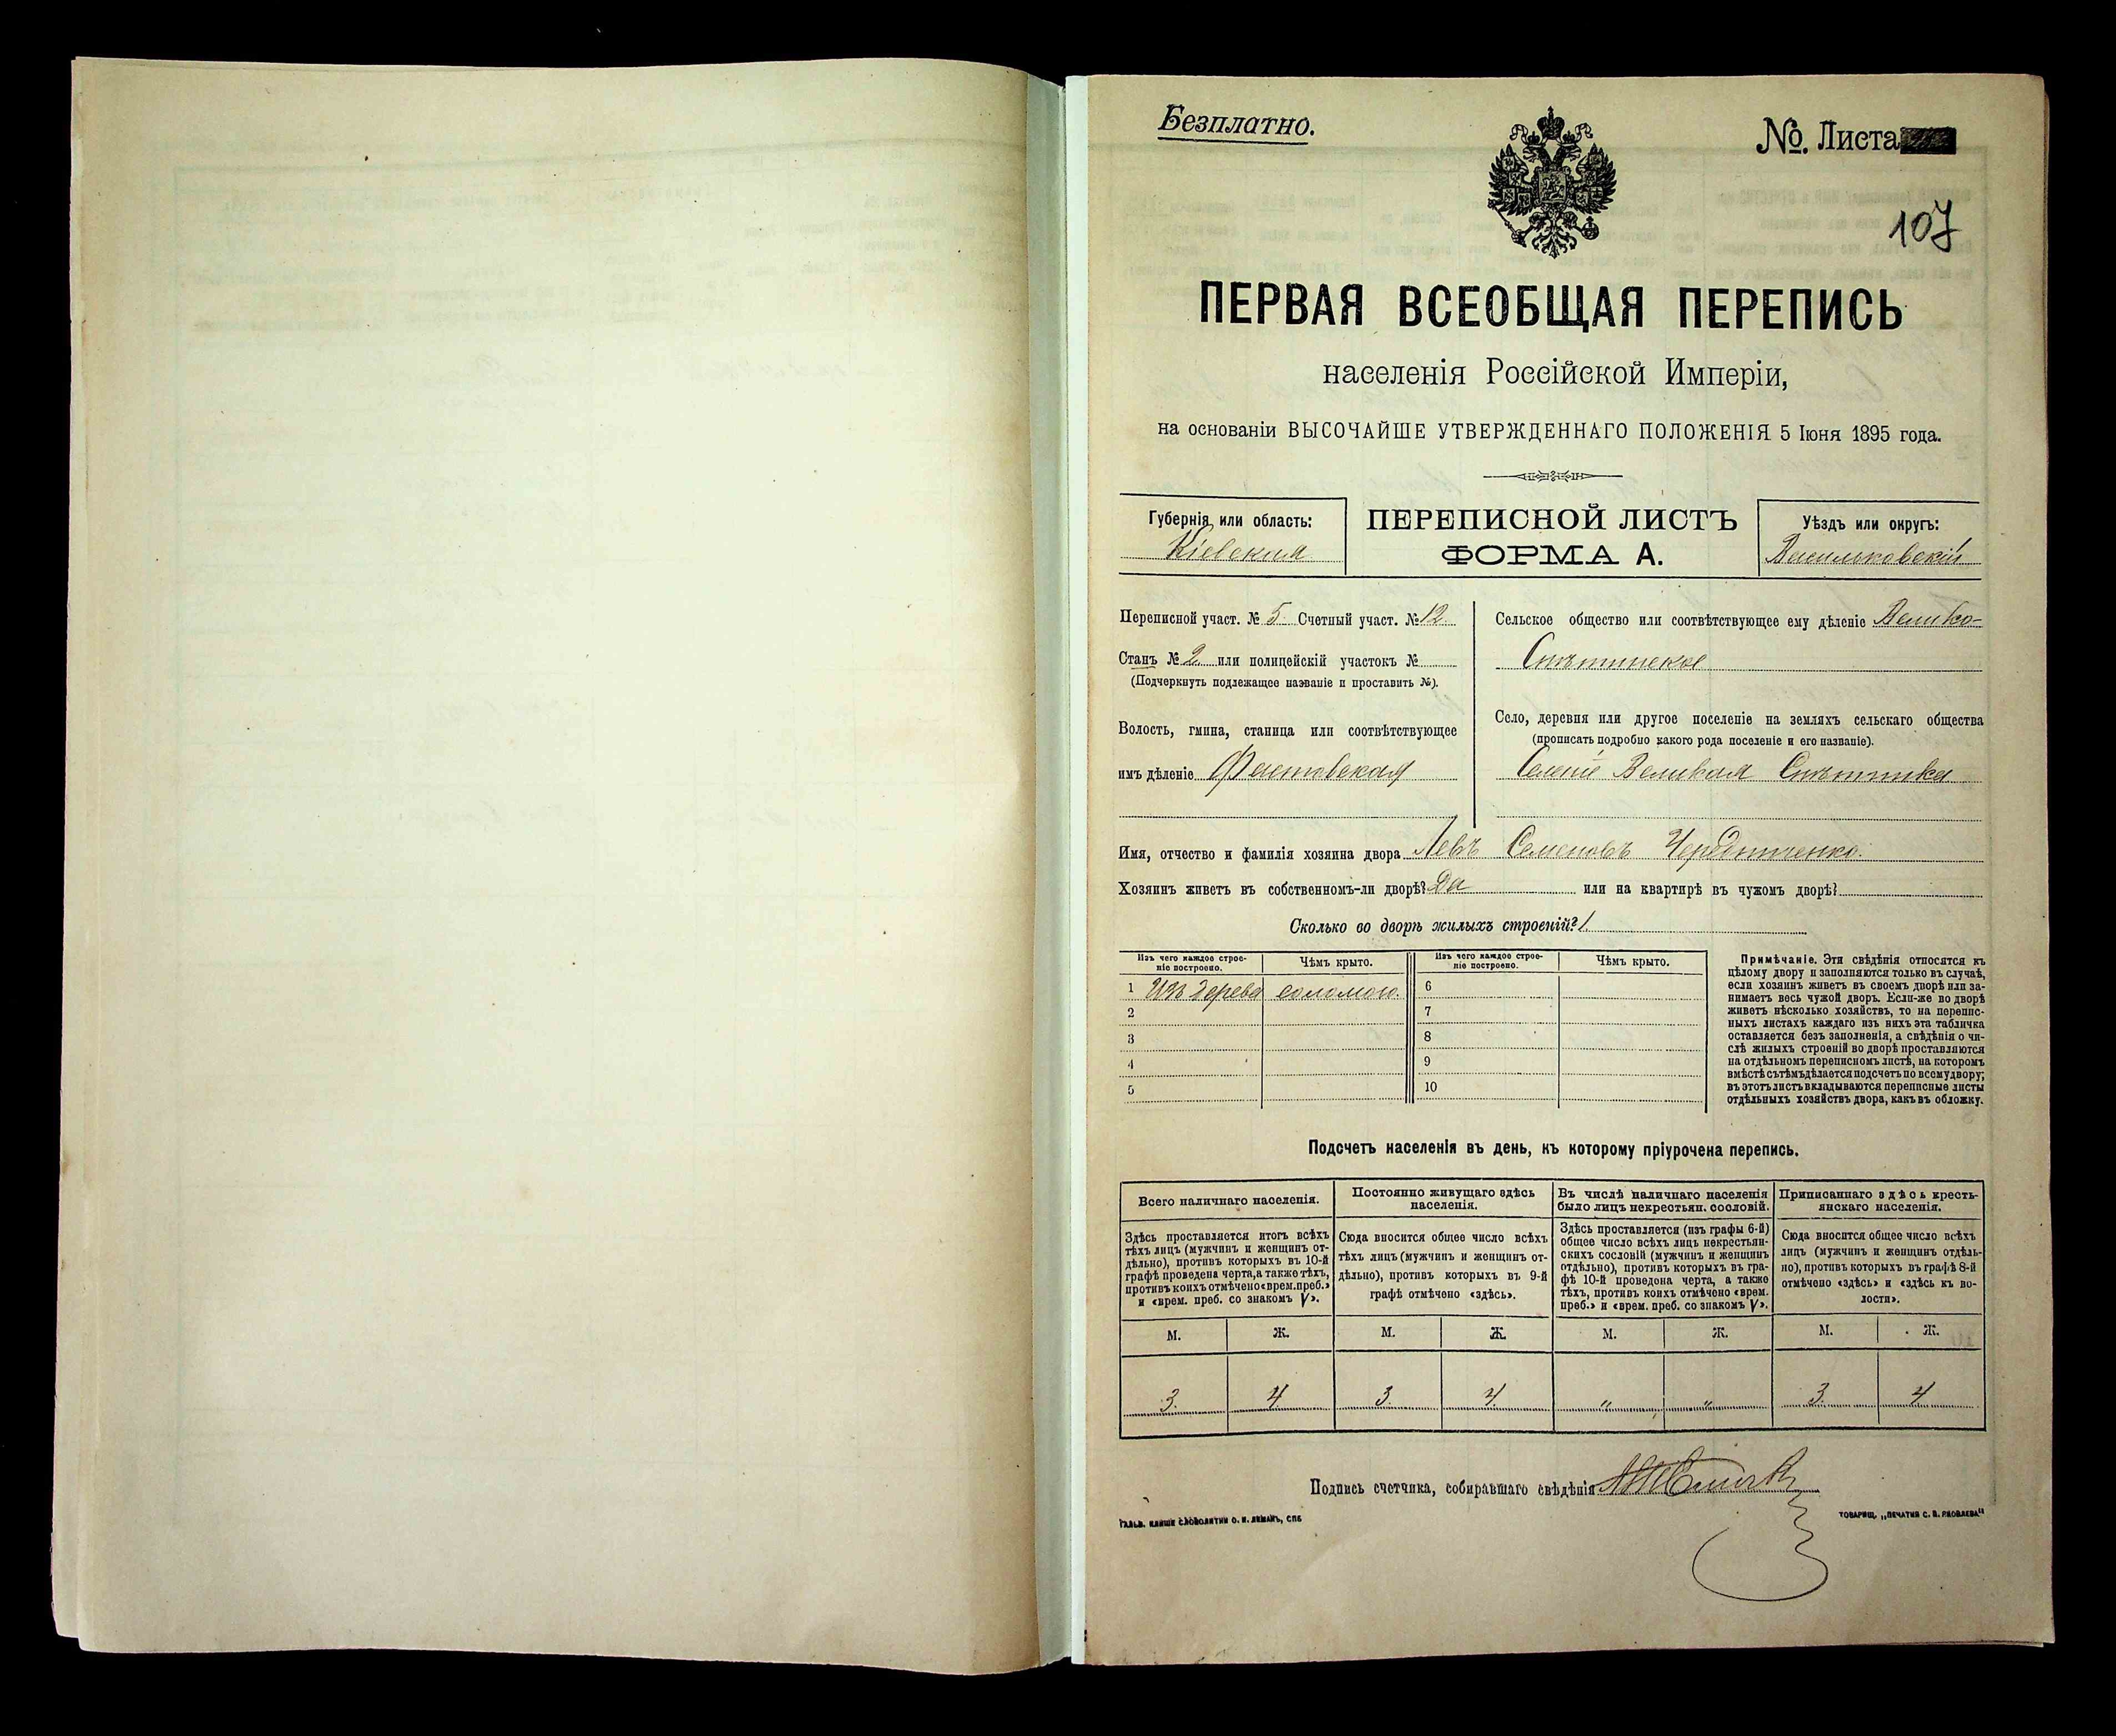 Безплатно.
№. Листа
107
ПЕРВАЯ ВСЕОБЩАЯ ПЕРЕПИСЬ
населенія Россійской Имперіи,
на основаніи ВЫСОЧАЙШЕ УТВЕРЖДЕННАГО ПОЛОЖЕНІЯ 5 Іюня 1895 года.
Губернія или область:
Кіевская
ПЕРЕПИСНОЙ ЛИСТЪ
ФОРМА А.
Уѣздъ или округъ:
Васильковскій
Переписной участ. № 5 Счетный участ. № 12
Станъ № 2 или полицейскій участокъ №
(Подчеркнуть подлежащее названіе и проставить №).
Волость, гмина, станица или соотвѣтствующее
имъ дѣленіе Фастовская
Сельское общество или соотвѣтствующее ему дѣленіе Велико-
Снѣтинское
Село, деревня или другое поселеніе на земляхъ сельскаго общества
(прописать подробно какого рода поселеніе и его названіе).
Селеніе Великая Снѣтинка
Имя, отчество и фамилія хозяина двора Левъ Семеновъ Чередниченко.
Хозяинъ живетъ въ собственномъ-ли дворѣ? Да или на квартирѣ въ чужомъ дворѣ?
Сколько во дворѣ жилыхъ строеній? 1
Изъ чего каждое строе-
ніе построено.
Чѣмъ крыто.
Изъ чего каждое строе-
ніе построено.
Чѣмъ крыто.
1 Изъ дерева соломою. 6
2 7
3 8
4 9
5 10
Примѣчаніе. Эти свѣдѣнія относятся къ
цѣлому двору и заполняются только въ случаѣ,
если хозяинъ живетъ въ своемъ дворѣ или за-
нимаетъ весь чужой дворъ. Если-же во дворѣ
живетъ нѣсколько хозяйствъ, то на перепис-
ныхъ листахъ каждаго изъ нихъ эта табличка
оставляется безъ заполненія, а свѣдѣнія о чи-
слѣ жилыхъ строеній во дворѣ проставляются
на отдѣльномъ переписномъ листѣ, на которомъ
вмѣстѣ съ тѣмъ дѣлается подсчетъ по всему двору;
въ этотъ листъ вкладываются переписные листы
отдѣльныхъ хозяйствъ двора, какъ въ обложку.
Подсчетъ населенія въ день, къ которому пріурочена перепись.
Всего наличнаго населенія.
Здѣсь проставляется итогъ всѣхъ
тѣхъ лицъ (мужчинъ и женщинъ от-
дѣльно), противъ которыхъ въ 10-й
графѣ проведена черта, а также тѣхъ,
противъ коихъ отмѣчено «врем. преб.»
и «врем. преб. со знакомъ V».
Постоянно живущаго здѣсь
населенія.
Сюда вносится общее число всѣхъ
тѣхъ лицъ (мужчинъ и женщинъ от-
дѣльно), противъ которыхъ въ 9-й
графѣ отмѣчено «здѣсь».
Въ числѣ наличнаго населенія
было лицъ некрестьян. сословій.
Здѣсь проставляется (изъ графы 6-й)
общее число всѣхъ лицъ некрестьян-
скихъ сословій (мужчинъ и женщинъ
отдѣльно), противъ которыхъ въ гра-
фѣ 10-й проведена черта, а также
тѣхъ, противъ коихъ отмѣчено «врем.
преб.» и «врем. преб. со знакомъ V».
Приписаннаго здѣсь кресть-
янскаго населенія.
Сюда вносится общее число всѣхъ
лицъ (мужчинъ и женщинъ отдѣль-
но), противъ которыхъ въ графѣ 8-й
отмѣчено «здѣсь» и «здѣсь къ во-
лости».
М. Ж. М. Ж. М. Ж. М. Ж.
3. 4 3. 4. " " 3. 4
Подпись счетчика, собиравшаго свѣдѣнія
ГАЛЬВ. КЛИШЕ СЛОВОЛИТНИ О. И. ЛЕМАНЪ, СПБ
ТОВАРИЩ. „ПЕЧАТНЯ С. П. ЯКОВЛЕВА"